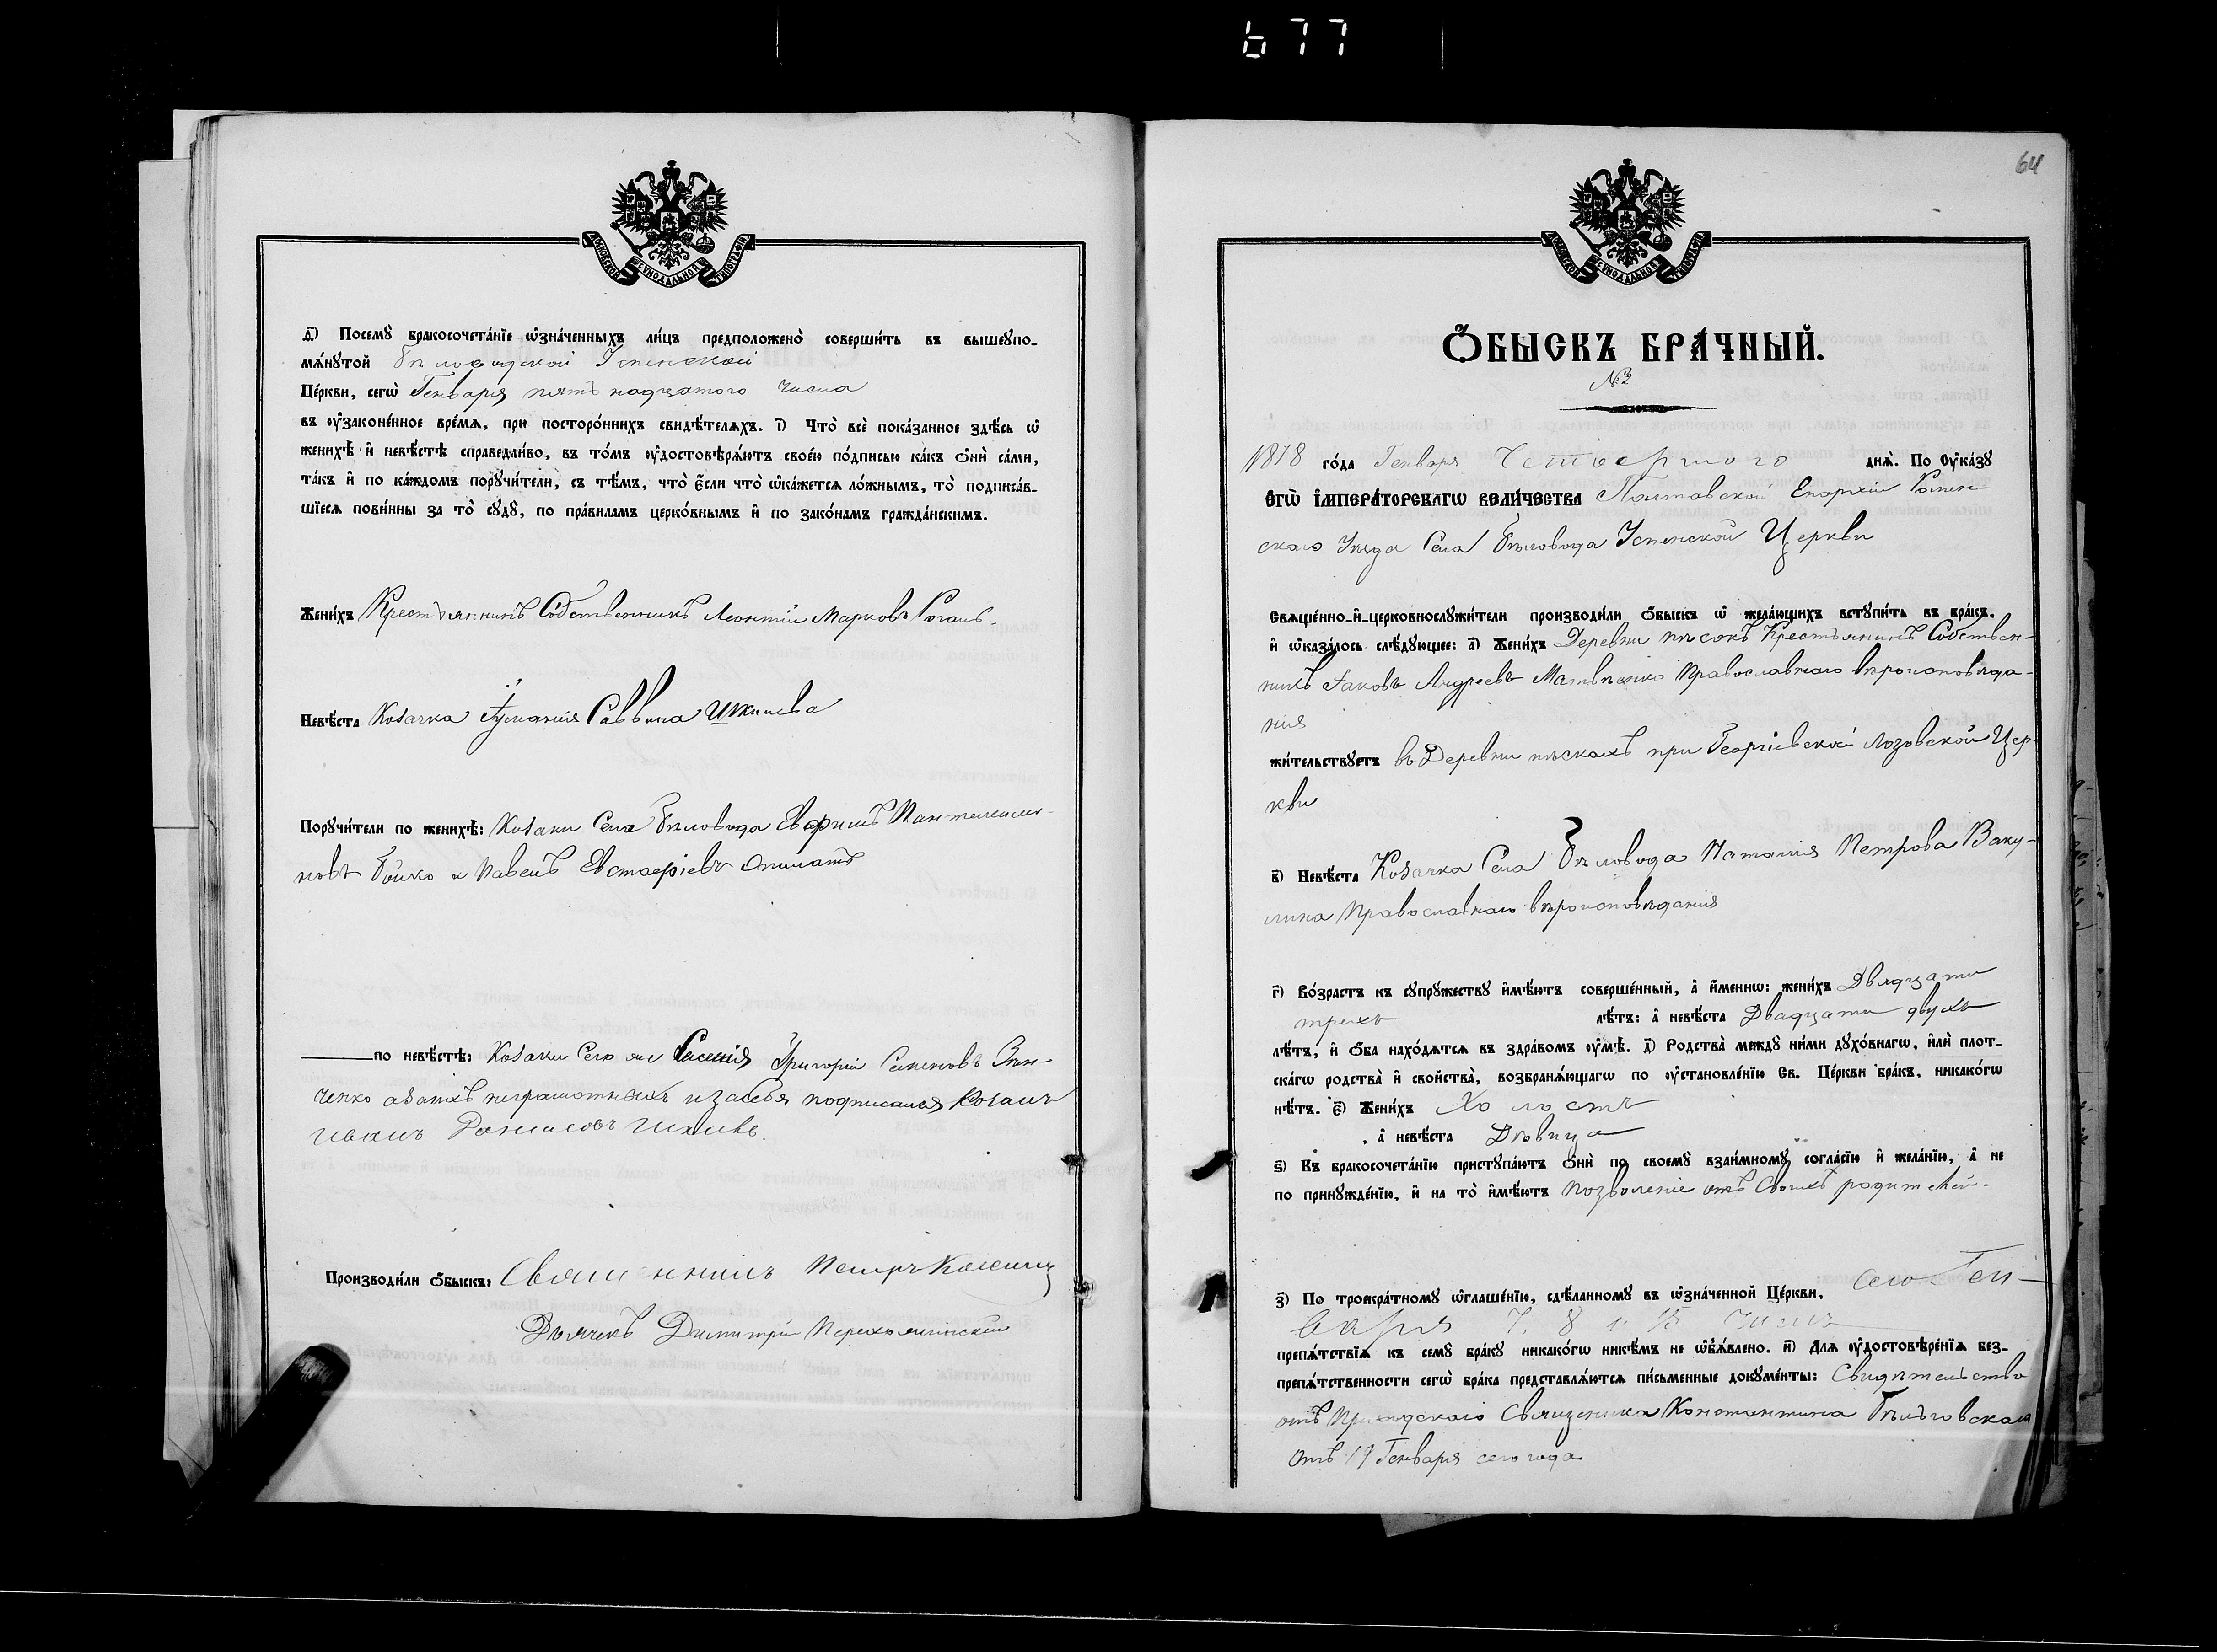 677
МОСКОВСКОЙ СѴНОДАЛЬНОЙ ТИПОГРАФІИ
ѳ҃) Посемꙋ бракосочета́нїе ѡ҆зна́ченныхъ ли́цъ предположено̀ соверши́ть въ вышеꙋпо-
мѧ́нꙋтой Бѣловодской Успенской
Це́ркви, сегѡ̀ Генваря пятнадцатого числа
въ ᲂу҆законе́нное вре́мѧ, при посторо́ннихъ свидѣ́телѧхъ. і҃) Что̀ всѐ пока́занное здѣ́сь ѡ҆
женихѣ̀ и҆ невѣ́стѣ справедли́во, въ то́мъ ᲂу҆достовѣрѧ́ютъ свое́ю по́дписью ка́къ ѻ҆нѝ са́ми,
та́къ и҆ по ка́ждомъ порꙋчи́тели, съ тѣ́мъ, что̀ є҆́сли что̀ ѡ҆ка́жетсѧ ло́жнымъ, то̀ подписа́в-
шїесѧ пови́нны за то̀ сꙋдꙋ̀, по пра́виламъ церко́внымъ и҆ по зако́намъ гражда́нскимъ.
Жени́хъ Крестьянинъ Собственникъ Леонтій Марковъ
Невѣ́ста Козачка Саввина
Порꙋчи́тели по женихѣ̀: Козаки Села Бѣловода Пантелеимо-
новъ Бойко и Павелъ Евстафіевъ
по невѣ́стѣ: Козаки Григорій Семеновъ Зин-
ченко неграмотныхъ и за себя подписался Козакъ
Иванъ
Производи́ли ѻ҆́быскъ: Священникъ Петръ
Дьячекъ Димитрій
64
МОСКОВСКОЙ СѴНОДАЛЬНОЙ ТИПОГРАФІИ
Ѻ҆́БЫСКЪ БРА́ЧНЫЙ.
№ 2
1878 го́да Генваря Четвертого днѧ̀. По Оу҆ка́зꙋ
Є҆ГѠ̀ І҆МПЕРА́ТОРСКАГѠ ВЕЛИ́ЧЕСТВА Полтавской Епархіи Ромен-
скаго Уѣзда Села Бѣловода Успенской Церкви
Свѧще́нно-и҆-церковнослꙋжи́тели производи́ли ѻ҆́быскъ ѡ҆ жела́ющихъ встꙋпи́ть въ бра́къ.
и҆ ѡ҆каза́лось слѣ́дꙋющее: а҃) Жени́хъ Деревни Пѣсокъ Крестьянинъ Собствен-
никъ Іаковъ Андреевъ Матвѣенко Православнаго вѣроисповѣда-
нія
жи́тельствꙋетъ въ Деревни Пѣскахъ при Георгіевской Лозовской Цер-
кви
в҃) Невѣ́ста Козачка Села Бѣловода Наталія Петрова Ваку-
лина Православнаго вѣроисповѣданія
г҃) Во́зрастъ къ сꙋпрꙋ́жествꙋ и҆мѣ́ютъ соверше́нный, а҆ и҆́меннѡ: жени́хъ Двадцати
трехъ лѣ́тъ: а҆ невѣ́ста Двадцати двухъ
лѣ́тъ, и҆ ѻ҆́ба нахо́дѧтсѧ въ здра́вомъ ᲂу҆мѣ̀. д҃) Родства̀ междꙋ ни́ми дꙋхо́внагѡ, и҆лѝ плот-
ска́гѡ родства̀ и҆ свойства̀, возбранѧ́ющагѡ по ᲂу҆становле́нїю Св. Це́ркви бра́къ, никако́гѡ
нѣ́тъ. є҃) Жени́хъ Холостъ
, а҆ невѣ́ста Дѣвица
ѕ҃) Къ бракосочета́нїю пристꙋпа́ютъ ѻ҆нѝ по своемꙋ̀ взаи́мномꙋ согла́сїю и҆ жела́нїю, а҆ не
по принꙋжде́нїю, и҆ на то̀ и҆мѣ́ютъ позволеніе отъ Своихъ родителей.
з҃) По троекра́тномꙋ ѡ҆глаше́нїю, сдѣ́ланномꙋ въ ѡ҆зна́ченной Це́ркви, сего Ген-
варя 7, 8 и 15 числъ
препѧ́тствїѧ къ семꙋ̀ бра́кꙋ никако́гѡ никѣ́мъ не ѡ҆б̾ѧ́влено. и҃) Для ᲂу҆достовѣре́нїѧ без-
препѧ́тственности сегѡ̀ бра́ка представлѧ́ютсѧ пи́сьменные докꙋме́нты: Свидѣтельство
отъ Приходскаго Священика Константина
отъ 19 Генваря сего года